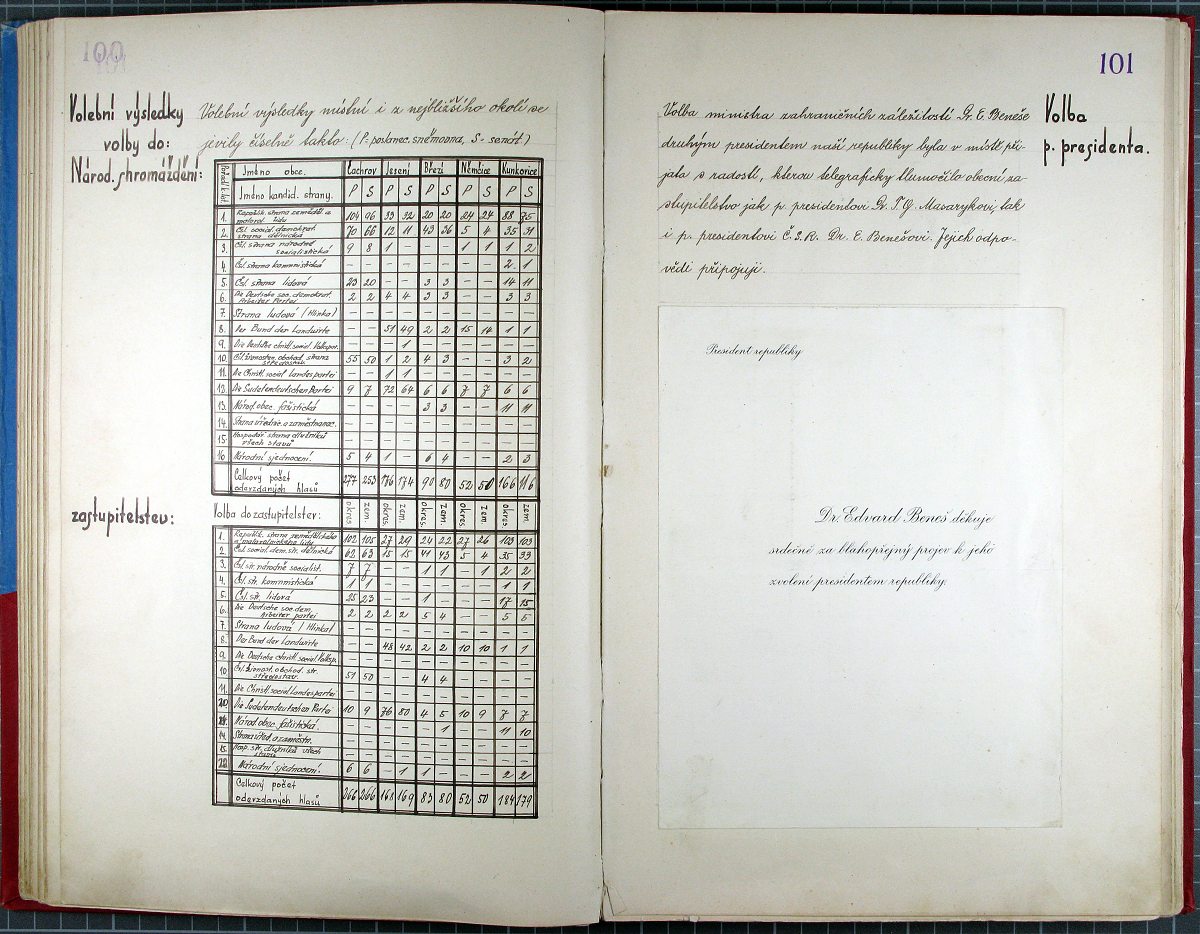 100
Volební výsledky
volby do:
Národ. shromáždění:
Volební výsledky místní i z nejbližšího okolí se
jevily číselně takto: (P= poslanec. sněmovna, S- senát.)
Jméno obce. Čachrov Jesení Březí Němčice Kunkovice
Jméno kandid. strany. P S P S P S P S P S
1. Republik. strana zeměděl. a malorol. lidu 104 96 33 32 20 20 24 24 88 75
2. Čsl. sociál. demokrat. strana dělnická 70 66 12 11 43 36 5 4 35 31
3. Čsl. strana národně socialistická 9 8 1 – – – 1 1 1 2
4. Čsl. strana komunistická – – – – – – – – 2 1
5. Čsl. strana lidová 23 20 – – 3 3 – – 14 11
6. Die Deutsche soc. demokrat. Arbeiter Partei 2 2 4 4 3 3 – – 3 3
7. Strana ludová (Hlinka) – – – – – – – – – –
8. Der Bund der Landwirte – – 51 49 2 2 15 14 1 1
9. Die Deutsche christl. social. Volkspar. – – – 1 – – – – – –
10. Čsl. živnosten. obchod. strana středostav. 55 50 1 2 4 3 – – 3 2
11. Die Christl. social landespartei – – 1 1 – – – – – –
12. Die Sudetendeutschen Partei 9 7 72 64 6 6 7 7 6 6
13. Národ. obec. fašistická – – – – 3 3 – – 11 11
14. Strana úřednic. a zaměstnanec. – – – – – – – – – –
15. Hospodář. strana dlužníků všech stavů – – – – – – – – – –
16 Národní sjednocení. 5 4 1 – 6 4 – – 2 3
Celkový počet odevzdaných hlasů 277 253 176 174 90 80 52 50 166 116
zastupitelstev:
Volba do zastupitelstev: okres. zem. okres. zem. okres. zem. okres. zem okres zem.
1. Republik. strana zemědělského a malorolnického lidu 102 105 27 29 24 22 27 26 103 103
2. Čsl. sociál. dem. str. dělnická 62 63 15 15 41 43 5 4 35 33
3. Čsl. str. národně socialist. 7 7 – – 1 1 – 1 2 2
4. Čsl. str. komunistická 1 1 – – – – – – 1 1
5. Čsl. str. lidová 25 23 – – 1 – – – 17 15
6. Die Deutsche soc. dem. Arbeiter partei 2 2 2 2 5 4 – – 5 5
7. Strana ludová (Hlinka) – – – – – – – – – –
8. Der Bund der Landwirte – – 48 42 2 2 10 10 1 1
9. Die Deutsche christl. social. Volksp. – – – – – – – – – –
10 Čsl. živnost. obchod. str. středostav. 51 50 – – 4 4 – – – –
11. Die Christl. social Landespartei – – – – – – – – – –
20. Die Sudetendeutschen Partei 10 9 76 80 4 5 10 9 7 7
Národ. obec fašistická. – – – – – 1 – – 11 10
14. Strana úřed. a zaměstn. – – – – – – – – – –
15. Hosp. str. dlužníků všech stavů – – – – – – – – – –
22. Národní sjednocení. 6 6 – 1 1 – – – 2 2
Celkový počet odevzdaných hlasů 266 266 168 169 83 80 52 50 184 179
101
Volba
p. presidenta.
Volba ministra zahraničních záležitostí Dr. E. Beneše
druhým presidentem naší republiky byla v místě při-
jata s radostí, kterou telegraficky tlumočilo obecní za-
stupitelstvo jak p. presidentovi Dr. T. G. Masarykovi, tak
i p. presidentovi Č.S.R. Dr. E. Benešovi. Jejich odpo-
vědi připojuji.
President republiky
Dr. Edvard Beneš děkuje
srdečně za blahopřejný projev k jeho
zvolení presidentem republiky.